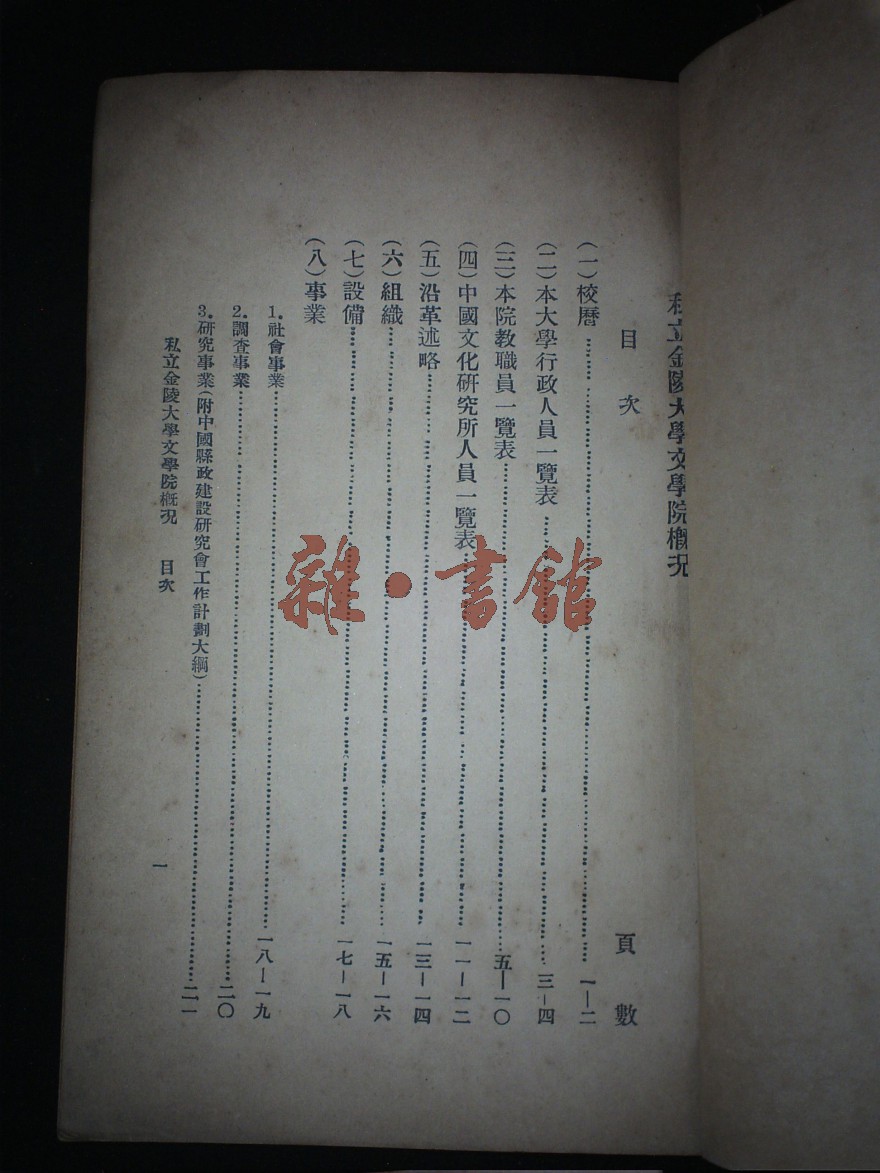 私立金陵大學文學院概況
目次 頁數
(一)校曆 一—二
(二)本大學行政人員一覽表 三—四
(三)本院教職員一覽表 五—一〇
(四)中國文化研究所人員一覽表 一一—一二
(五)沿革述略 一三—一四
(六)組織 一五—一六
(七)設備 一七—一八
(八)事業
1.社會事業 一八—一九
2.調查事業 二〇
3.研究事業(附中國縣政建設研究會工作計劃大綱) 二一
私立金陵大學文學院概況 目次 一
雜·書館